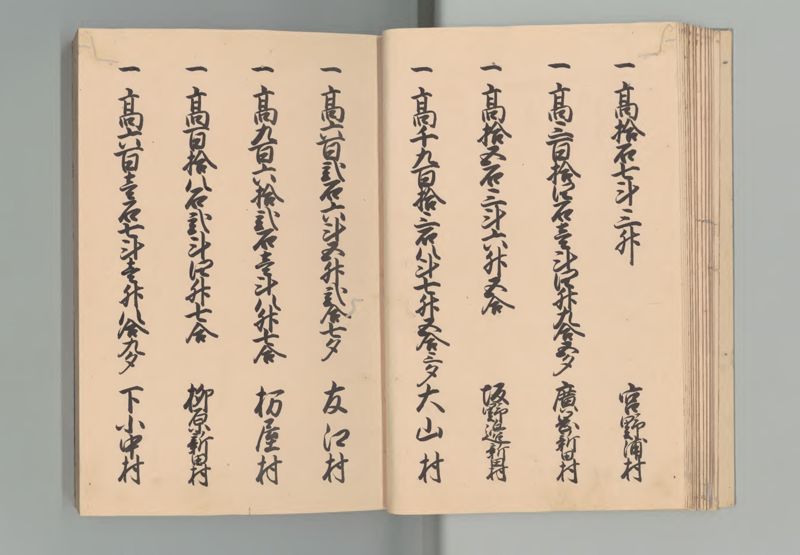 一 高拾石七斗三升 宮野浦村
一 高三百拾四石壱斗四升九合五夕 廣岡新田村
一 高拾五石三斗六升五合 坂野辺新田村
一 高千九百拾三石八斗七升五合三夕 大山村
一 高六百弐石六斗五升弐合七夕 友江村
一 高九百六拾弐石壱斗八升七合 栃屋村
一 高百拾八石弐斗四升七合 柳原新田村
一 高六百壱石七斗壱升八合九夕 下小中村